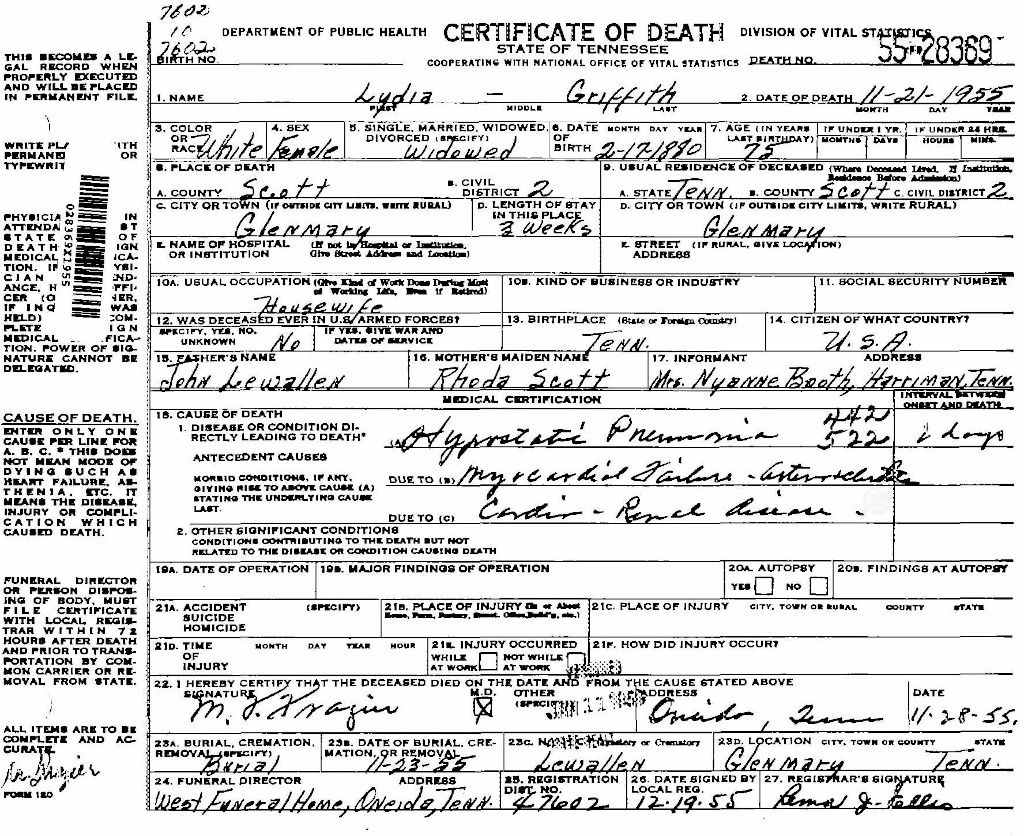 7602
10
7602
BIRTH NO.
DEPARTMENT OF PUBLIC HEALTH CERTIFICATE OF DEATH DIVISION OF VITAL STATISTICS
STATE OF TENNESSEE
COOPERATING WITH NATIONAL OFFICE OF VITAL STATISTICS DEATH NO. 55-28369
THIS BECOMES A LE-
GAL RECORD WHEN
PROPERLY EXECUTED
AND WILL BE PLACED
IN PERMANENT FILE.
1. NAME Lydia - Griffith 2. DATE OF DEATH 11-21-1955
FIRST MIDDLE LAST MONTH DAY YEAR
3. COLOR OR RACE White 4. SEX Female 5. SINGLE, MARRIED, WIDOWED, DIVORCED (SPECIFY) Widowed 6. DATE OF BIRTH MONTH DAY YEAR 2-17-1880 7. AGE (IN YEARS LAST BIRTHDAY) 75 IF UNDER 1 YR. MONTHS DAYS IF UNDER 24 HRS. HOURS MINS.
WRITE PL ITH
PERMANE OR
TYPEWRIT
8. PLACE OF DEATH 9. USUAL RESIDENCE OF DECEASED (Where Deceased Lived. If Institution, Residence Before Admission)
A. COUNTY Scott B. CIVIL DISTRICT 2 A. STATE Tenn. B. COUNTY Scott C. CIVIL DISTRICT 2
C. CITY OR TOWN (IF OUTSIDE CITY LIMITS, WRITE RURAL) Glenmary D. LENGTH OF STAY IN THIS PLACE 3 Weeks D. CITY OR TOWN (IF OUTSIDE CITY LIMITS, WRITE RURAL) Glenmary
E. NAME OF HOSPITAL OR INSTITUTION (If not in Hospital or Institution, Give Street Address and Location) E. STREET ADDRESS (IF RURAL, GIVE LOCATION)
028369X1955
PHYSICIA IN
ATTENDA ST
STATE OF
DEATH IGN
MEDICAL ICA-
TION. IF YSI-
CIAN ND-
ANCE, H FFI-
CER (O ER,
IF INQ WAS
HELD) COM-
PLETE IGN
MEDICAL FICA-
TION. POWER OF SIG-
NATURE CANNOT BE
DELEGATED.
10A. USUAL OCCUPATION (Give Kind of Work Done During Most of Working Life, Even if Retired) Housewife 10B. KIND OF BUSINESS OR INDUSTRY 11. SOCIAL SECURITY NUMBER
12. WAS DECEASED EVER IN U.S. ARMED FORCES? SPECIFY, YES, NO, UNKNOWN No IF YES, GIVE WAR AND DATES OF SERVICE 13. BIRTHPLACE (State or Foreign Country) Tenn. 14. CITIZEN OF WHAT COUNTRY? U.S.A.
15. FATHER'S NAME John Lewallen 16. MOTHER'S MAIDEN NAME Rhoda Scott 17. INFORMANT ADDRESS Mrs. Nyanne Booth, Harriman, Tenn.
MEDICAL CERTIFICATION INTERVAL BETWEEN ONSET AND DEATH
CAUSE OF DEATH.
ENTER ONLY ONE
CAUSE PER LINE FOR
A. B. C. * THIS DOES
NOT MEAN MODE OF
DYING SUCH AS
HEART FAILURE, AS-
THENIA, ETC. IT
MEANS THE DISEASE,
INJURY OR COMPLI-
CATION WHICH
CAUSED DEATH.
18. CAUSE OF DEATH 442
1. DISEASE OR CONDITION DI-
RECTLY LEADING TO DEATH* (A) Hypostatic Pneumonia 522 2 days
ANTECEDENT CAUSES
MORBID CONDITIONS, IF ANY,
GIVING RISE TO ABOVE CAUSE (A)
STATING THE UNDERLYING CAUSE
LAST.
DUE TO (B) Myocardial Failure -
DUE TO (C) Cardio-Renal disease.
2. OTHER SIGNIFICANT CONDITIONS
CONDITIONS CONTRIBUTING TO THE DEATH BUT NOT
RELATED TO THE DISEASE OR CONDITION CAUSING DEATH
19A. DATE OF OPERATION 19B. MAJOR FINDINGS OF OPERATION 20A. AUTOPSY YES NO 20B. FINDINGS AT AUTOPSY
FUNERAL DIRECTOR
OR PERSON DISPOS-
ING OF BODY, MUST
FILE CERTIFICATE
WITH LOCAL REGIS-
TRAR WITHIN 72
HOURS AFTER DEATH
AND PRIOR TO TRANS-
PORTATION BY COM-
MON CARRIER OR RE-
MOVAL FROM STATE.
21A. ACCIDENT SUICIDE HOMICIDE (SPECIFY) 21B. PLACE OF INJURY (In or About Home, Farm, Factory, Street, Office, Build'g, etc.) 21C. PLACE OF INJURY CITY, TOWN OR RURAL COUNTY STATE
21D. TIME OF INJURY MONTH DAY YEAR HOUR 21E. INJURY OCCURRED WHILE AT WORK NOT WHILE AT WORK 21F. HOW DID INJURY OCCUR?
22. I HEREBY CERTIFY THAT THE DECEASED DIED ON THE DATE AND FROM THE CAUSE STATED ABOVE
SIGNATURE M. F. Frazier M.D. OTHER (SPECIFY) ADDRESS Oneida, Tenn DATE 11-28-55.
ALL ITEMS ARE TO BE
COMPLETE AND AC-
CURATE.
Dr. Frazier
FORM 120
23A. BURIAL, CREMATION, REMOVAL (SPECIFY) Burial 23B. DATE OF BURIAL, CRE-MATION, OR REMOVAL 11-23-55 23C. NAME OF Cemetery or Crematory Lewallen 23D. LOCATION CITY, TOWN OR COUNTY STATE Glenmary Tenn.
24. FUNERAL DIRECTOR ADDRESS West Funeral Home, Oneida, Tenn. 25. REGISTRATION DIST. NO. 47602 26. DATE SIGNED BY LOCAL REG. 12-19-55 27. REGISTRAR'S SIGNATURE